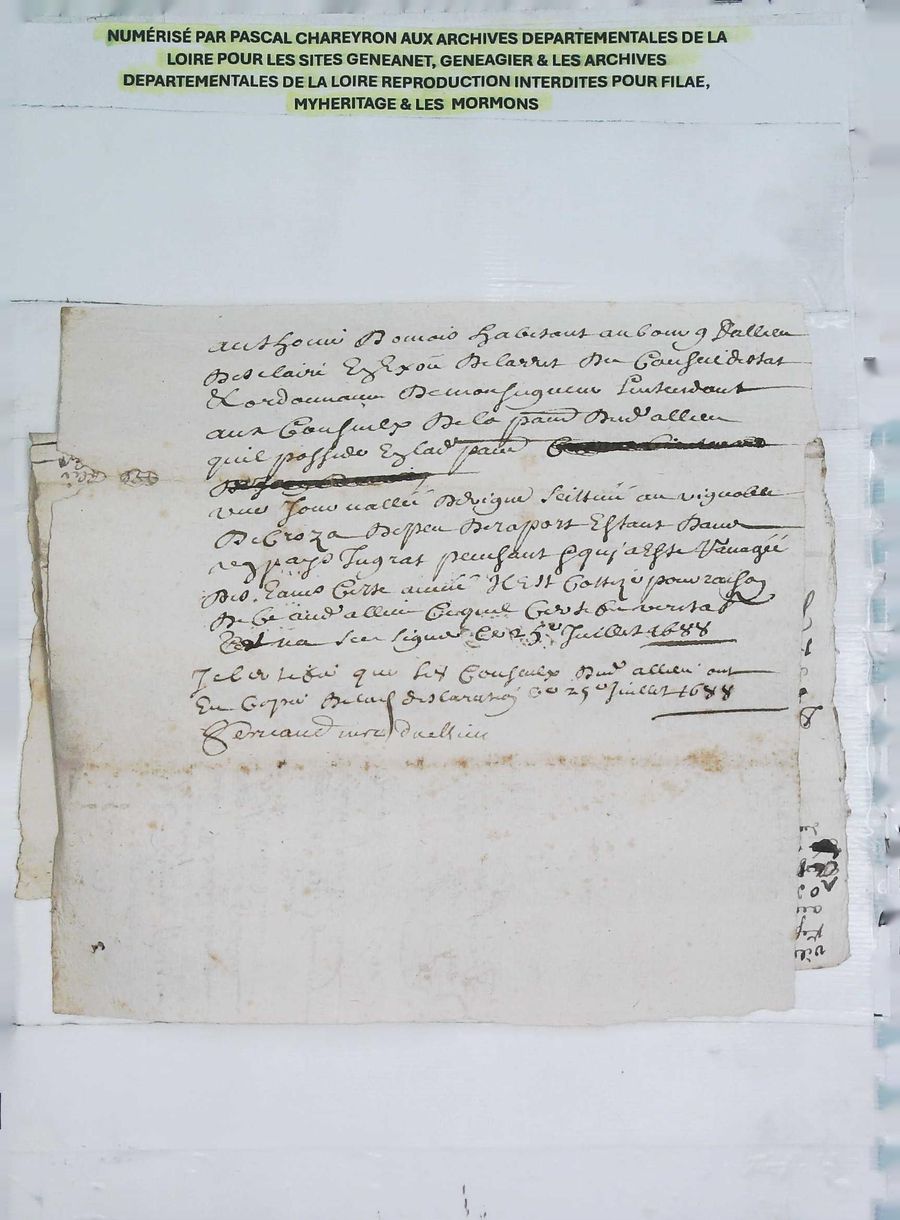 NUMÉRISÉ PAR PASCAL CHAREYRON AUX ARCHIVES DEPARTEMENTALES DE LA
LOIRE POUR LES SITES GENEANET, GENEAGIER & LES ARCHIVES
DEPARTEMENTALES DE LA LOIRE REPRODUCTION INTERDITES POUR FILAE,
MYHERITAGE & LES MORMONS
habitant au bourg d'allieu
desclaire en exon de larrest du Conseil destat
& ordonnance de monseigneur Lintendant
aux Consulx de la parr dud allieu
quil possede en lad parr
une Journallée de vigne scittuée au vignoble
de Croza de peu de raport Estant dans
un pays Ingrat penchant & qui a Esté
des Eaux Cette année Il Est Cottizé pour raison
de Ce aud allieu Cequil Certe Ce veritable
na sceu signer Ce 25e Juillet 1688
Je Certifie que les Consulx dud allieu ont
Eu Copie de lad desclaration Ce 25e Juillet 1688